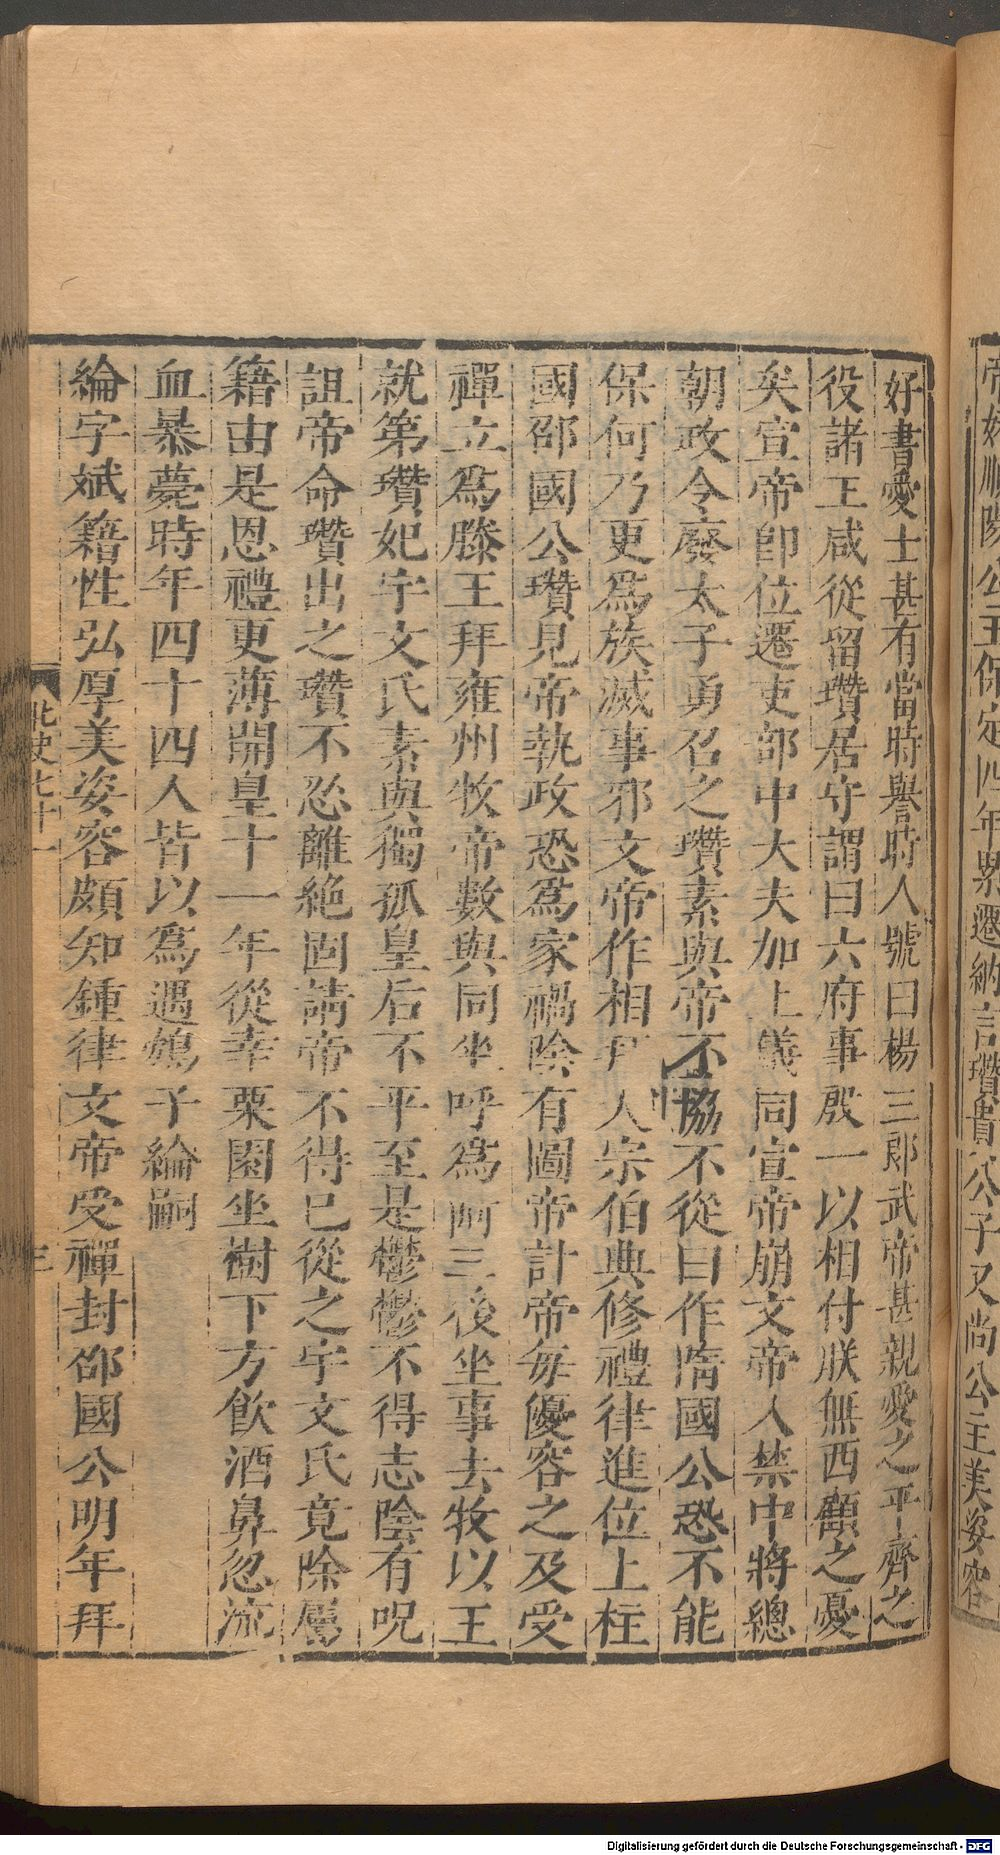 帝妹順陽公主保定四年累遷納言瓚貴公子又尚公主美姿容
好書愛士甚有當時譽時人號曰楊三郎武帝甚親愛之平齊之
役諸王咸從留瓚居守謂曰六府事殷一以相付朕無西顧之憂
矣宣帝卽位遷吏部中大夫加上儀同宣帝崩文帝入禁中將總
朝政令廢太子勇召之瓚素與帝不協不從曰作隋國公恐不能
保何乃更爲族滅事邪文帝作相拜大宗伯典修禮律進位上柱
國邵國公瓚見帝執政恐爲家禍陰有圖帝計帝每優容之及受
禪立爲滕王拜雍州牧帝數與同坐呼爲阿三後坐事去牧以王
就第瓚妃宇文氏素與獨孤皇后不平至是鬱鬱不得志陰有呪
詛帝命瓚出之瓚不忍離絶固請帝不得已從之宇文氏竟除屬
籍由是恩禮更薄開皇十一年從幸栗園坐樹下方飲酒鼻忽流
血暴薨時年四十四人皆以爲遇鴆子綸嗣
綸字斌籀性弘厚美姿容頗知鍾律文帝受禪封邵國公明年拜
北史七十一
三
Digitalisierung gefördert durch die Deutsche Forschungsgemeinschaft - DFG